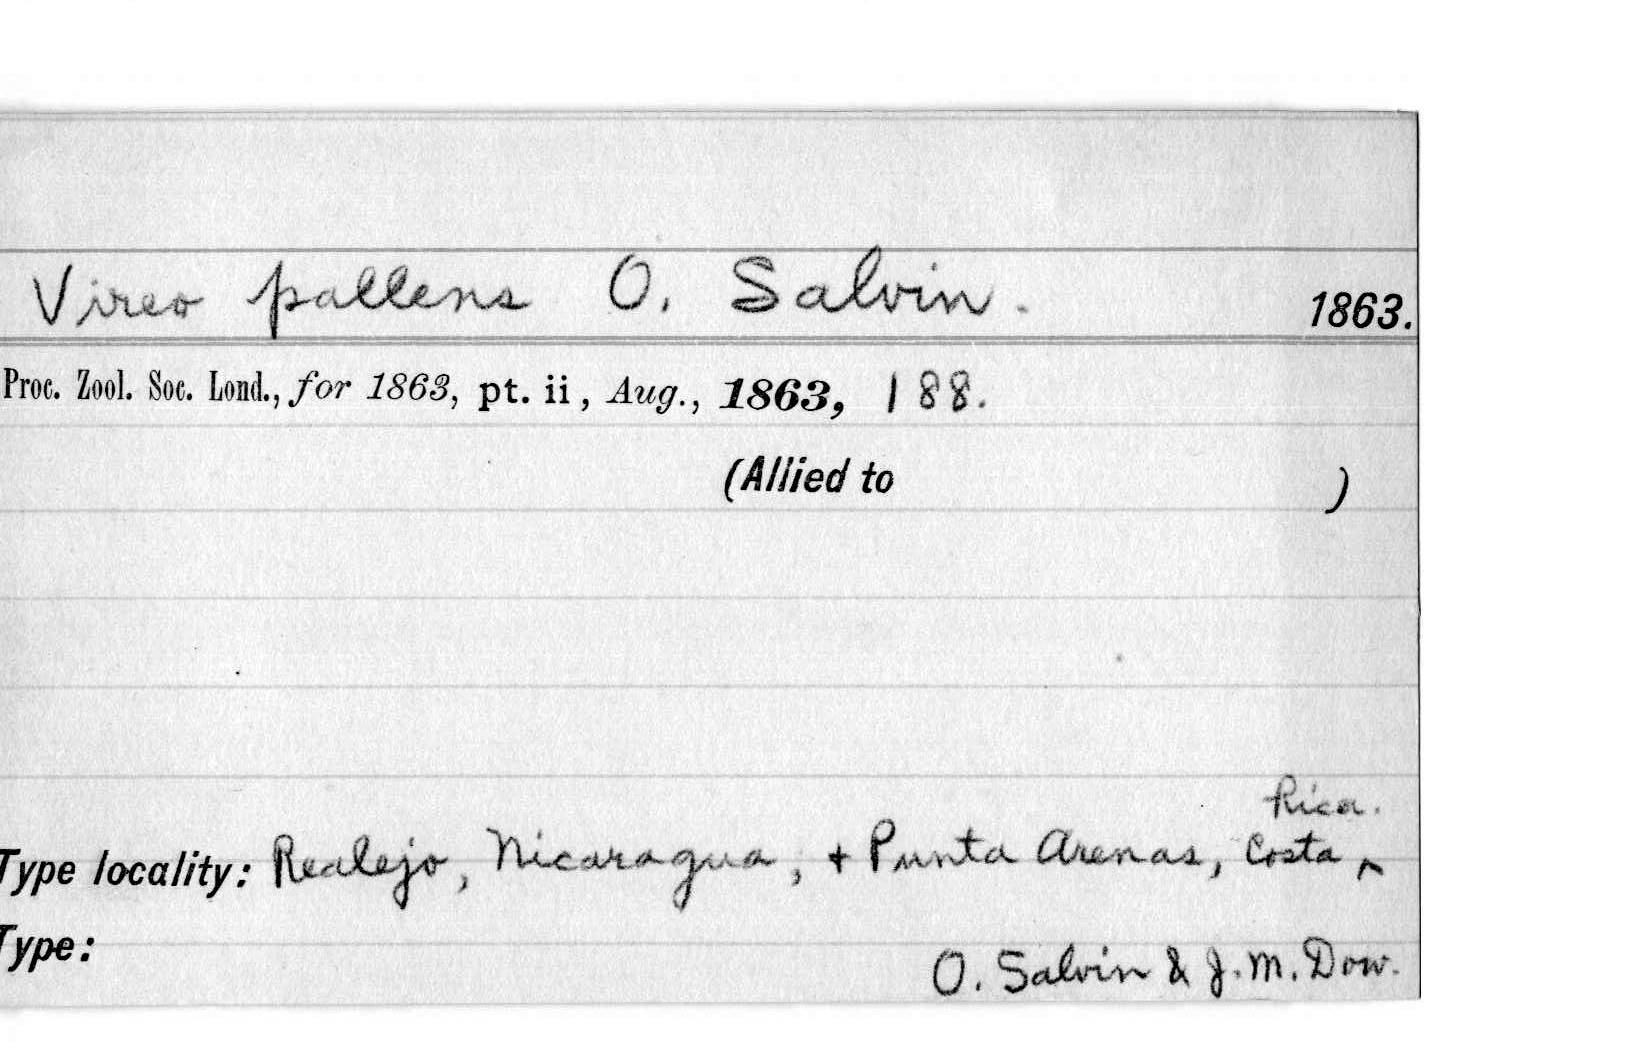 Vireo pallens O. Salvin. 1863.
Proc. Zool. Soc. Lond., for 1863, pt. ii, Aug., 1863, 188.
(Allied to )
Rica.
Type locality: Realejo, Nicaragua, + Punta Arenas, Costa ^
Type:
O. Salvin & J. M. Dow.